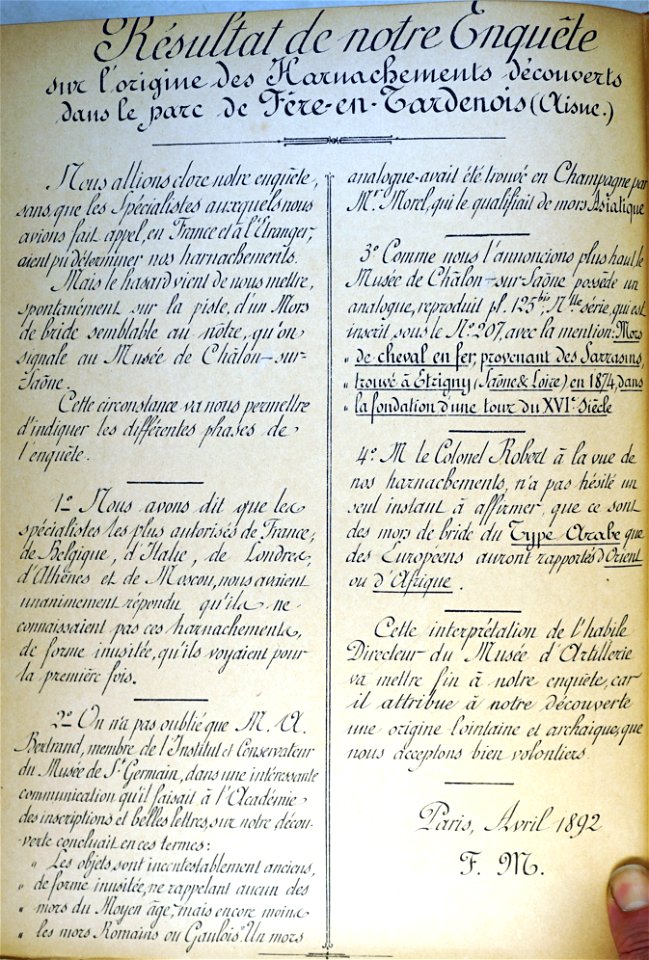 Résultat de notre Enquête
sur l'origine des Harnachements découverts
dans le parc de Fère-en-Tardenois (Aisne.)
Nous allions clore notre enquête,
sans que les Spécialistes auxquels nous
avions fait appel, en France et à l'Etranger,
aient pu déterminer nos harnachements.
Mais le hasard vient de nous mettre,
spontanément sur la piste, d'un Mors
de bride semblable au nôtre, qu'on
signale au Musée de Châlon-sur-
Saône.
Cette circonstance va nous permettre
d'indiquer les différentes phases de
l'enquête.
1º Nous avons dit que les
spécialistes les plus autorisés de France,
de Belgique, d'Italie, de Londres,
d'Athènes et de Moscou, nous avaient
unanimement répondu qu'ils ne
connaissaient pas ces harnachements,
de forme inusitée, qu'ils voyaient pour
la première fois.
2º On n'a pas oublié que M. A.
Bertrand, membre de l'Institut et Conservateur
du Musée de St Germain, dans une intéressante
communication qu'il faisait à l'Académie
des inscriptions et belles lettres, sur notre décou-
verte concluait en ces termes:
" Les objets, sont incontestablement anciens,
" de forme inusitée, ne rappelant aucun des
" mors du Moyen âge, mais encore moins
" les mors Romains ou Gaulois". Un mors
analogue avait été trouvé en Champagne par
Mr Morel, qui le qualifiait de mors Asiatique
3º Comme nous l'annoncions plus haut, le
Musée de Châlon-sur-Saône possède un
analogue, reproduit pl. 125 bis, Nlle série, qui est
inscrit sous le Nº 207, avec la mention: Mors
" de cheval en fer, provenant des Sarrasins,
" trouvé à Etrigny (Saône & Loire) en 1874, dans
" la fondation d'une tour du XVIe Siècle
4º M le Colonel Robert à la vue de
nos harnachements, n'a pas hésité un
seul instant à affirmer, que ce sont
des mors de bride du Type Arabe que
des Européens auront rapportés d'Orient
ou d'Afrique.
Cette interprétation de l'habile
Directeur du Musée d'Artillerie
va mettre fin à notre enquête, car
il attribue à notre découverte
une origine lointaine et archaïque, que
nous acceptons bien volontiers.
Paris, Avril 1892
F. M.